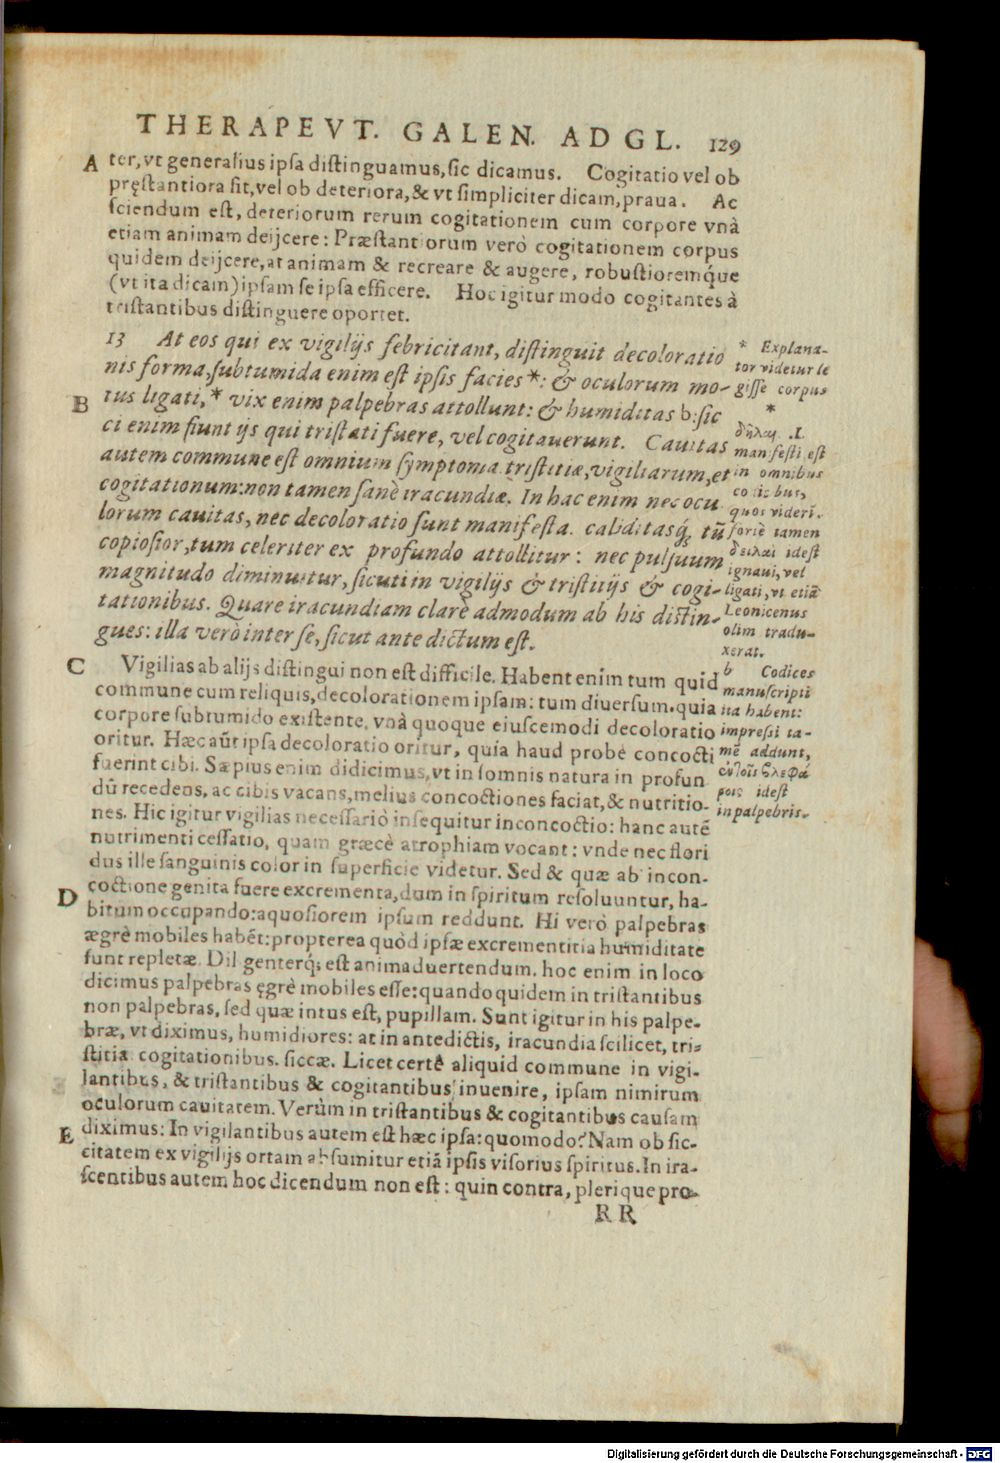 THERAPEVT. GALEN. AD GL. 129
A ter, vt generalius ipsa distinguamus, sic dicamus. Cogitatio vel ob
pręstantiora sit, vel ob deteriora, & vt simpliciter dicam, praua. Ac
sciendum est, deteriorum rerum cogitationem cum corpore vnà
etiam animam deijcere: Præstantiorum verò cogitationem corpus
quidem deijcere, at animam & recreare & augere, robustioremq́ue
(vt ita dicam) ipsam se ipsa efficere. Hoc igitur modo cogitantes à
tristantibus distinguere oportet.
13 At eos qui ex vigilijs febricitant, distinguit decoloratio
nis forma, subtumida enim est ipsis facies*: & oculorum mo-
B tus ligati,* vix enim palpebras attollunt: & humiditas b: sic
ci enim fiunt ijs qui tristati fuere, vel cogitauerunt. Cauitas
autem commune est omnium symptoma tristitiæ, vigiliarum, et
cogitationum: non tamen sanè iracundiæ. In hac enim nec ocu
lorum cauitas, nec decoloratio sunt manifesta. caliditasq́; tũ
copiosior, tum celeriter ex profundo attollitur: nec pulsuum
magnitudo diminuitur, sicuti in vigilijs & tristitijs & cogi-
tationibus. Quare iracundiam clarè admodum ab his distin-
gues: illa verò inter se, sicut ante dictum est.
* Explana-
tor videtur le
gisse corpus
*
δῆλαι .I.
manifesti est
in omnibus
codicibus,
quos videri.
fortè tamen
δειλαὶ idest
ignaui, vel
ligati, vt etiã
Leonicenus
olim tradu-
xerat.
b Codices
manuscripti
ita habent:
impressi ta-
mẽ addunt,
idest
in palpebris.
C Vigilias ab alijs distingui non est difficile. Habent enim tum quid
commune cum reliquis, decolorationem ipsam: tum diuersum. quia
corpore subtumido existente, vnà quoque eiuscemodi decoloratio
oritur. Hæc aũt ipsa decoloratio oritur, quia haud probè concocti
fuerint cibi. Sæpius enim didicimus, vt in somnis natura in profun
dũ recedens, ac cibis vacans, melius concoctiones faciat, & nutritio-
nes. Hic igitur vigilias necessariò insequitur inconcoctio: hanc autẽ
nutrimenti cessatio, quam græcè atrophiam vocant: vnde nec flori
dus ille sanguinis color in superficie videtur. Sed & quæ ab incon-
coctione genita fuere excrementa, dum in spiritum resoluuntur, ha-
D bitum occupando: aquosiorem ipsum reddunt. Hi verò palpebras
ægrè mobiles habẽt: propterea quòd ipsæ excrementitia humiditate
sunt repletæ. Diligenterq́; est animaduertendum. hoc enim in loco
dicimus palpebras ęgrè mobiles esse: quandoquidem in tristantibus
non palpebras, sed quæ intus est, pupillam. Sunt igitur in his palpe-
bræ, vt diximus, humidiores: at in antedictis, iracundia scilicet, tri-
stitia cogitationibus. siccæ. Licet certè aliquid commune in vigi-
lantibus, & tristantibus & cogitantibus inuenire, ipsam nimirum
oculorum cauitatem. Verùm in tristantibus & cogitantibus causam
E diximus: In vigilantibus autem est hæc ipsa: quomodo? Nam ob sic-
citatem ex vigilijs ortam absumitur etiã ipsis visorius spiritus. In ira-
scentibus autem hoc dicendum non est: quin contra, plerique pro-
RR
Digitalisierung gefördert durch die Deutsche Forschungsgemeinschaft - DFG